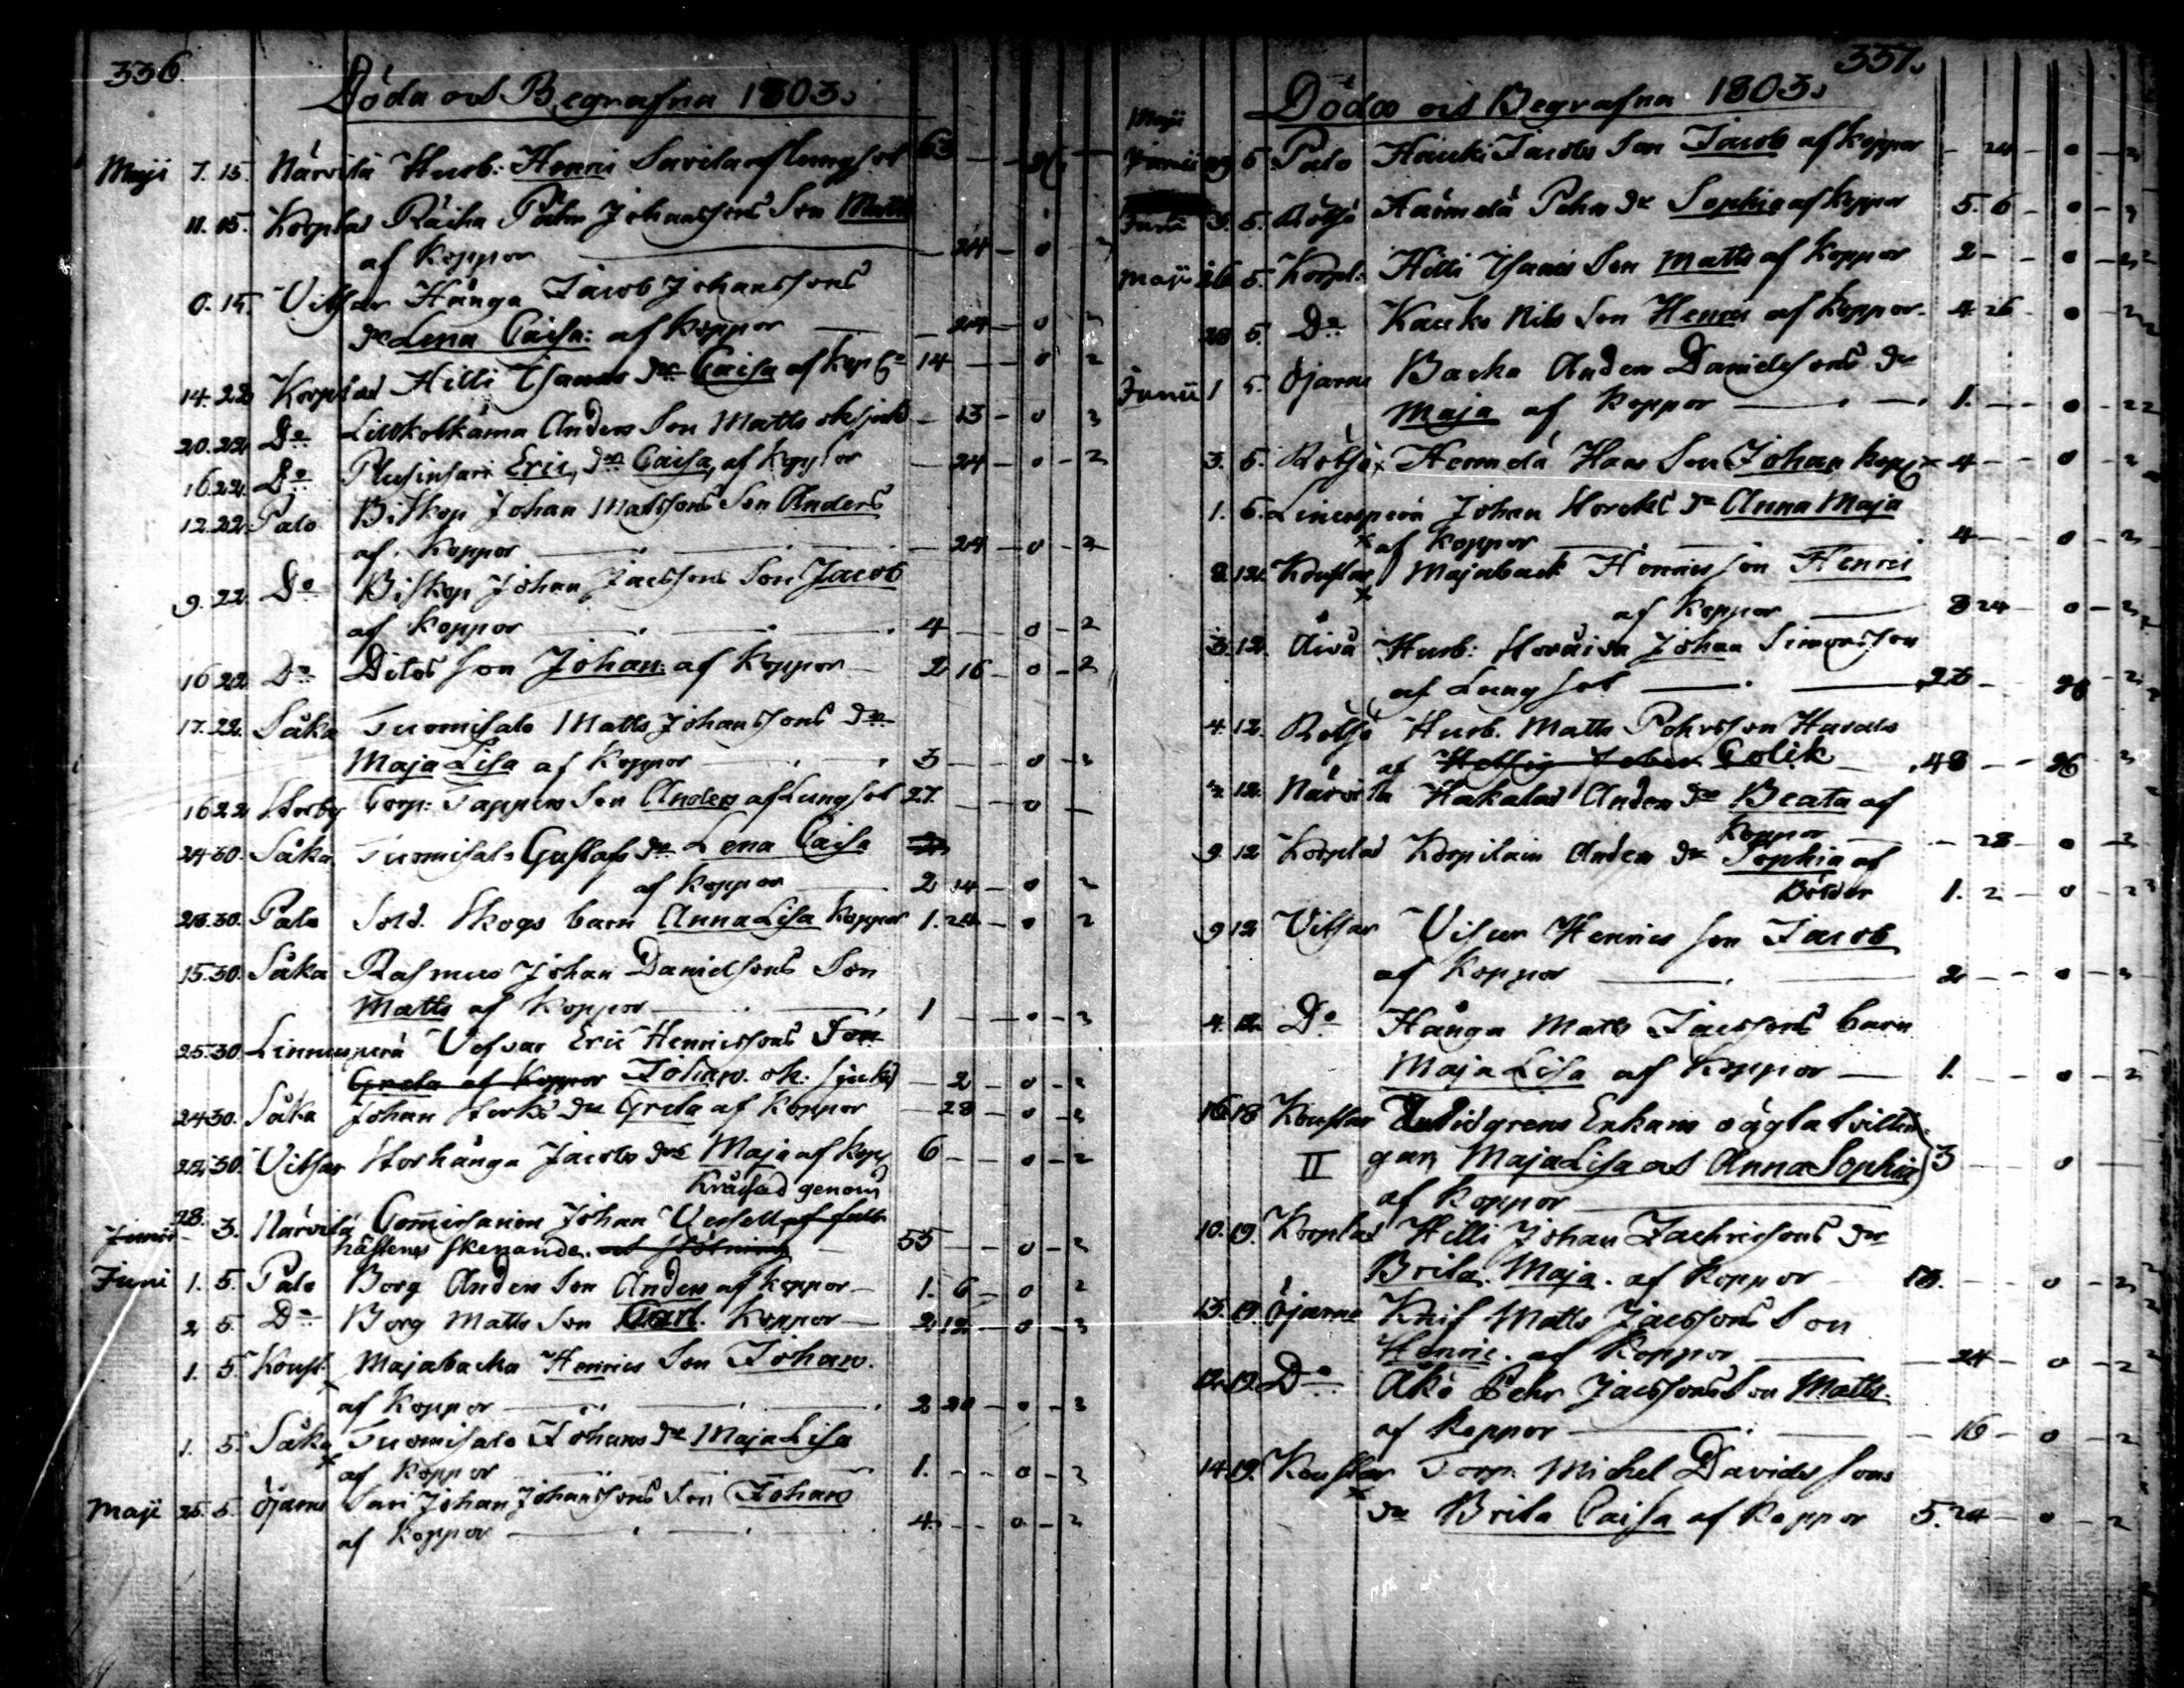 336.
Döda och Begrafna 1803.
Maji 7. 15. Närvilä Husb: Henric Savila af lungsot 63 — —
11. 15. Korplax Räihä Pähr Johanssons Son Matts
af koppor — 24 — 0 — 2
15. Vitsar Hånga Jacob Johanssons
dr Lena Caisa: af koppor — 24 — 0 2
14. 22 Korplax Hilli Isaacs dr Caisa af kop 14 — — 0 2
20. 22 Do Anders Son Matts 13 — 0 2
16. 22. Do Eric dr Caisa, af koppor — 24 — 0 — 2
12. 22. Palo Biskop Johan Matssons Son Anders
af koppor — 24 — 0 — 2
9. 22 Do Biskop Johan Jacssons Son Jacob
af koppor 4 — — 0 — 2
16 22 Do Ditos son Johan: af koppor — 2 16 — 0 — 2
17. 22. Såka Tuomisalo Matts Johanssons dr
Maja Lisa af koppor 3 — — 0 — 2
16 22 Storby Corp: Tappers Son Anders af Lungsot 27. — — 0 —
24 30. Såka Tuomisalo Gustafs dr Lena Caisa
af koppor 2 14 — 0 2
28. 30. Palo Sold. Skogs barn Anna Lisa koppor 1. 24 — 0 2
15. 30. Såka Rasmus Johan Danielssons Son
Matts af koppor 1 — — 0 — 2
25. 30 Linnusperä Vessar Eric Henricssons Son
Greta af koppor Johan. ok: sjukd — 2 — 0 — 2
24 30. Såka Johan Storks dr Greta af koppor — 28 — 0 — 2
22. 30. Vitsar Storhånga Jacobs dr Maja af kopp 6 — — 0 — 2
Kråssad genom
Junii 28. 3. Närvilä Comissarien Johan Vessell af fall
hästens skenande. och stötning 55 — — 0 — 2
Juni 1. 5. Palo Borg Anders Son Anders af koppor — 1. 6 — 0 2
2 5. Do Borg Matts Son Carl. Koppor — 2 12 — 0 — 2
1. 5. Koust. Majabacka Henrics Son Johan.
af koppor 2 20 — 0 — 2
1. 5. Såka Tuomisalo Johans dr Maja Lisa
af koppor 1. — — 0 — 2
Maji 25. 5. Öjarne Sari Johan Johanssons Son Johan
af koppor 4. — — 0 — 2
337.
Döda och Begrafna 1803.
Maji
29 5 Palo Hauki Jacobs Son Jacob af koppor — 24 — 0 — 2
Junii 3. 5. Rötsö Pehrs dr Sophia af koppor 5. 6 — 0 — 2
Maji 26 5. Korpl: Hilli Isaacs Son Matts af koppor 2 — — 0 — 2
28 5. Do Kauko Nils Son Henric af koppor. 4. 26 — 0 — 2
Junii 1 5. Öjarne Backa Anders Danielssons dr
Maja af koppor 1. — — 0 — 2
3. 5. Rötsö Hans Son Johan kopp 4 — — 0 — 2
1. 5. Linusperä Johan Storcks dr Anna Maja
af koppor 4 — — 0 — 2
8. 12. Koustar Majaback Henrics son Henric
af koppor 8 24 — 0 — 2
3. 12. Husb: Johan Simonsson
af Lungsot 28 — — — 2
4. 12. Rötsö Husb. Matts Pehrsson
af Hettig feber Colik 48 — — 36 — 2
12. Närvilä Hakalas Anders dr Beata af
koppor — 28 — 0 — 2
9. 12 Korplax Korpilain Anders dr Sophia af
Bölder 1. 2 — 0 — 2
9 12 Vitsar Henrics son Jacob
af koppor 2 — — 0 — 2
4. 12. Do Hånga Matts Jacssons barn
Maja Lisa af koppor — 1. — — 0 — 2
16 18 Koustar Enkans oägta tvillin-
II gar, Maja Lisa och Anna Sophia 3 — — 0 —
af koppor
10. 19. Korplax Hilli Johan Zachrissons dr
Brita. Maja. af koppor 13. — — 0 — 2
13. 19. Öjarne Knif Matts Jacssons Son
Henric. af koppor — 24 — 0 — 2
12. 19. Do Åkö Pehr Jacssons Son Matts
af koppor — 16 — 0 — 2
14. 19. Koustar Torp. Michel Davidssons
dr Brita Caisa af koppor 5. 24 — 0 — 2